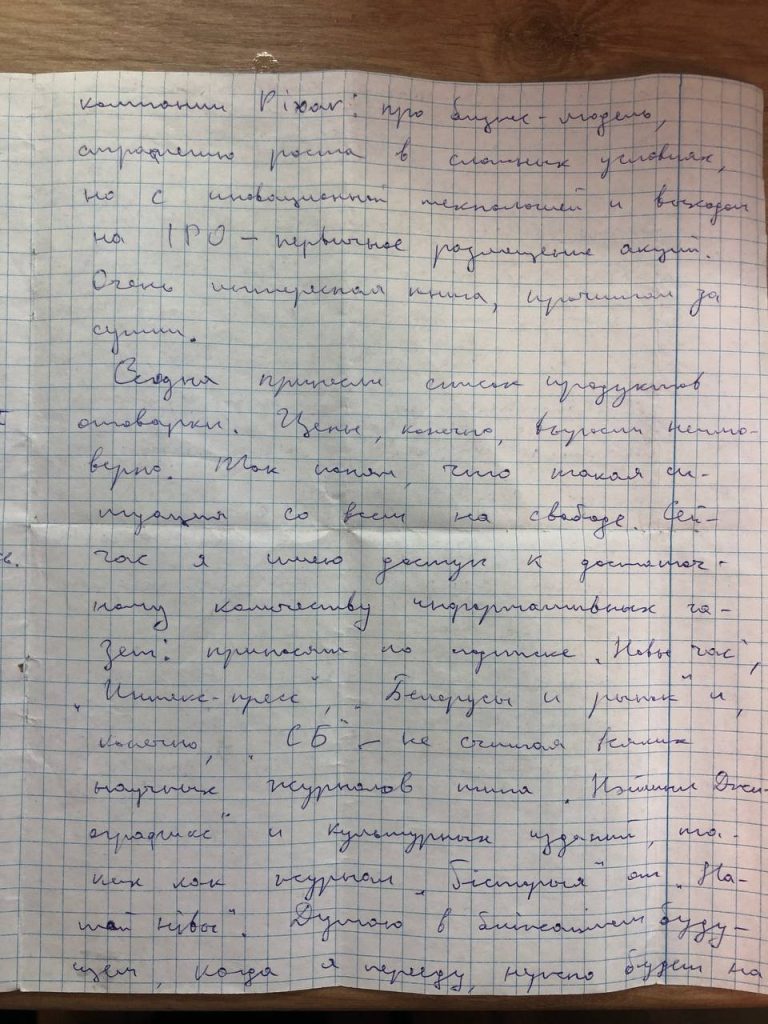 компании Pixar: про бизнес-модель,
стратегию роста в сложных условиях,
но с иновационной технологией и выходом
на IPO – первичное размещение акций.
Очень интересная книга, прочитал за
сутки.
Сегодня принесли список продуктов
отоварки. Цены, конечно, выросли неимо-
верно. Так понял, что такая си-
туация со всем на свободе. Сей-
час я имею доступ к достаточ-
ному количеству информативных га-
зет: приносят по подписке „Новы час",
„Интекс-пресс", „Белорусы и рынок" и,
конечно, „СБ" – не считая всяких
научных журналов типа „Нэшинл Джи-
ографикс" и культурных изданий, та-
ких как журнал „Гісторыя" от „На-
шай нівы". Думаю в ближайшем буду-
щем, когда я перееду, нужно будет на